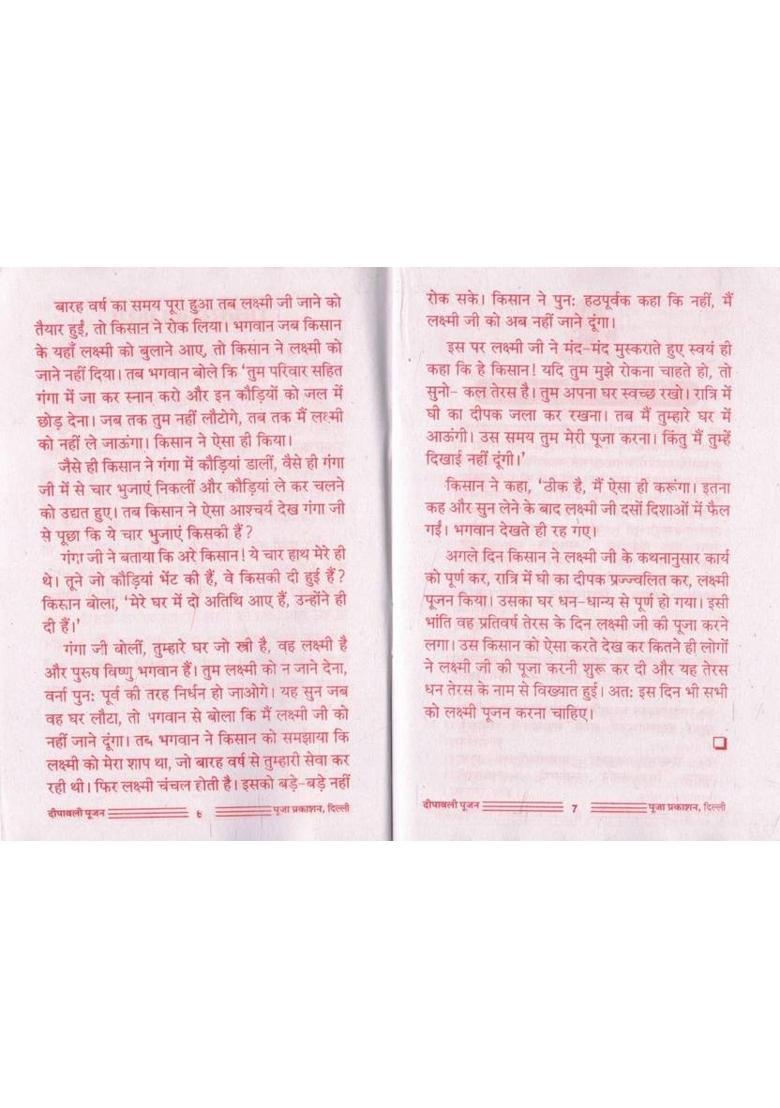 बारह वर्ष का समय पूरा हुआ तब लक्ष्मी जी जाने को
तैयार हुईं, तो किसान ने रोक लिया। भगवान जब किसान
के यहाँ लक्ष्मी को बुलाने आए, तो किसान ने लक्ष्मी को
जाने नहीं दिया। तब भगवान बोले कि ‘तुम परिवार सहित
गंगा में जा कर स्नान करो और इन कौड़ियों को जल में
छोड़ देना। जब तक तुम नहीं लौटोगे, तब तक मैं लक्ष्मी
को नहीं ले जाऊंगा। किसान ने ऐसा ही किया।
जैसे ही किसान ने गंगा में कौड़ियां डालीं, वैसे ही गंगा
जी में से चार भुजाएं निकलीं और कौड़ियां ले कर चलने
को उद्यत हुए। तब किसान ने ऐसा आश्चर्य देख गंगा जी
से पूछा कि ये चार भुजाएं किसकी हैं?
गंगा जी ने बताया कि अरे किसान! ये चार हाथ मेरे ही
थे। तूने जो कौड़ियां भेंट की हैं, वे किसकी दी हुई हैं?
किसान बोला, ‘मेरे घर में दो अतिथि आए हैं, उन्होंने ही
दी हैं।’
गंगा जी बोलीं, तुम्हारे घर जो स्त्री है, वह लक्ष्मी है
और पुरुष विष्णु भगवान हैं। तुम लक्ष्मी को न जाने देना,
वर्ना पुनः पूर्व की तरह निर्धन हो जाओगे। यह सुन जब
वह घर लौटा, तो भगवान से बोला कि मैं लक्ष्मी जी को
नहीं जाने दूंगा। तब भगवान ने किसान को समझाया कि
लक्ष्मी को मेरा शाप था, जो बारह वर्ष से तुम्हारी सेवा कर
रही थी। फिर लक्ष्मी चंचल होती है। इसको बड़े-बड़े नहीं
दीपावली पूजन ६ पूजा प्रकाशन, दिल्ली
रोक सके। किसान ने पुनः हठपूर्वक कहा कि नहीं, मैं
लक्ष्मी जी को अब नहीं जाने दूंगा।
इस पर लक्ष्मी जी ने मंद-मंद मुस्कराते हुए स्वयं ही
कहा कि हे किसान! यदि तुम मुझे रोकना चाहते हो, तो
सुनो- कल तेरस है। तुम अपना घर स्वच्छ रखो। रात्रि में
घी का दीपक जला कर रखना। तब मैं तुम्हारे घर में
आऊंगी। उस समय तुम मेरी पूजा करना। किंतु मैं तुम्हें
दिखाई नहीं दूंगी।’
किसान ने कहा, ‘ठीक है, मैं ऐसा ही करूंगा। इतना
कह और सुन लेने के बाद लक्ष्मी जी दसों दिशाओं में फैल
गईं। भगवान देखते ही रह गए।
अगले दिन किसान ने लक्ष्मी जी के कथनानुसार कार्य
को पूर्ण कर, रात्रि में घी का दीपक प्रज्ज्वलित कर, लक्ष्मी
पूजन किया। उसका घर धन-धान्य से पूर्ण हो गया। इसी
भांति वह प्रतिवर्ष तेरस के दिन लक्ष्मी जी की पूजा करने
लगा। उस किसान को ऐसा करते देख कर कितने ही लोगों
ने लक्ष्मी जी की पूजा करनी शुरू कर दी और यह तेरस
धन तेरस के नाम से विख्यात हुई। अतः इस दिन भी सभी
को लक्ष्मी पूजन करना चाहिए।
दीपावली पूजन 7 पूजा प्रकाशन, दिल्ली